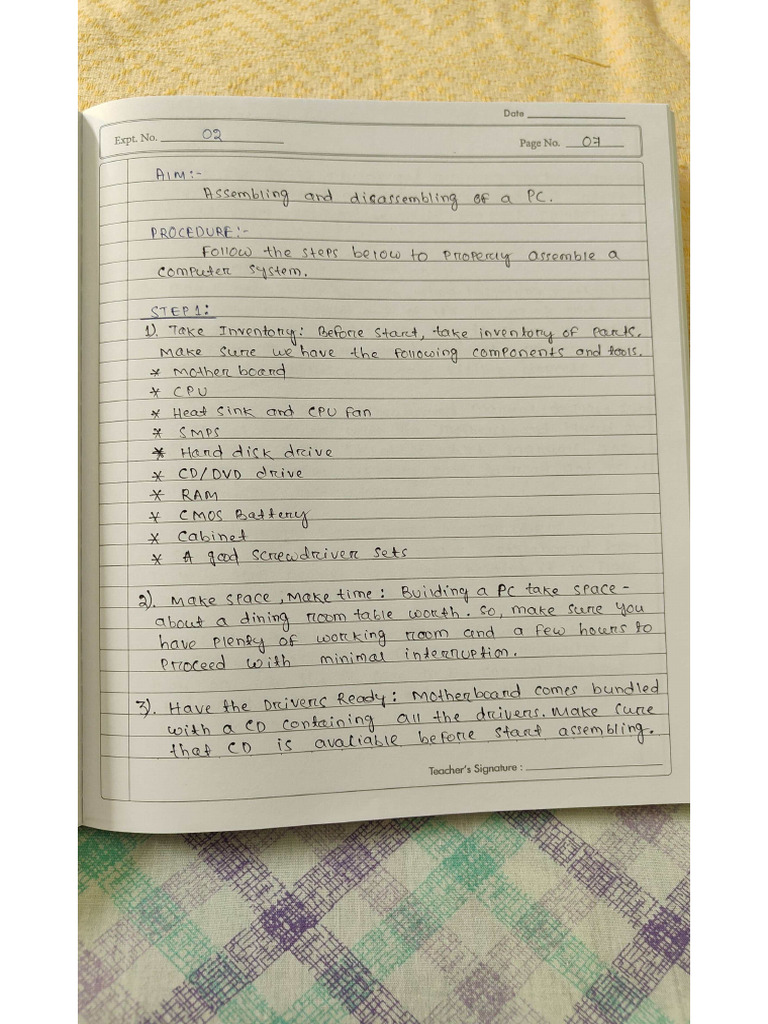 Date
Expt. No. 02
Page No. 07
AIM:-
Assembling and disassembling of a PC.
PROCEDURE:-
Follow the steps below to properly assemble a
computer system.
STEP 1:
1). Take Inventory: Before start, take inventory of parts.
Make sure we have the following components and tools.
* Mother board
* CPU
* Heat sink and CPU fan
* SMPS
* Hard disk drive
* CD/DVD drive
* RAM
* CMOS Battery
* Cabinet
* A good screwdriver sets
2). Make space, Make time: Building a PC take space-
about a dining room table worth. So, make sure you
have plenty of working room and a few hours to
proceed with minimal interruption.
3). Have the Drivers Ready: Motherboard comes bundled
with a CD containing all the drivers. Make sure
that CD is avaliable before start assembling.
Teacher's Signature :